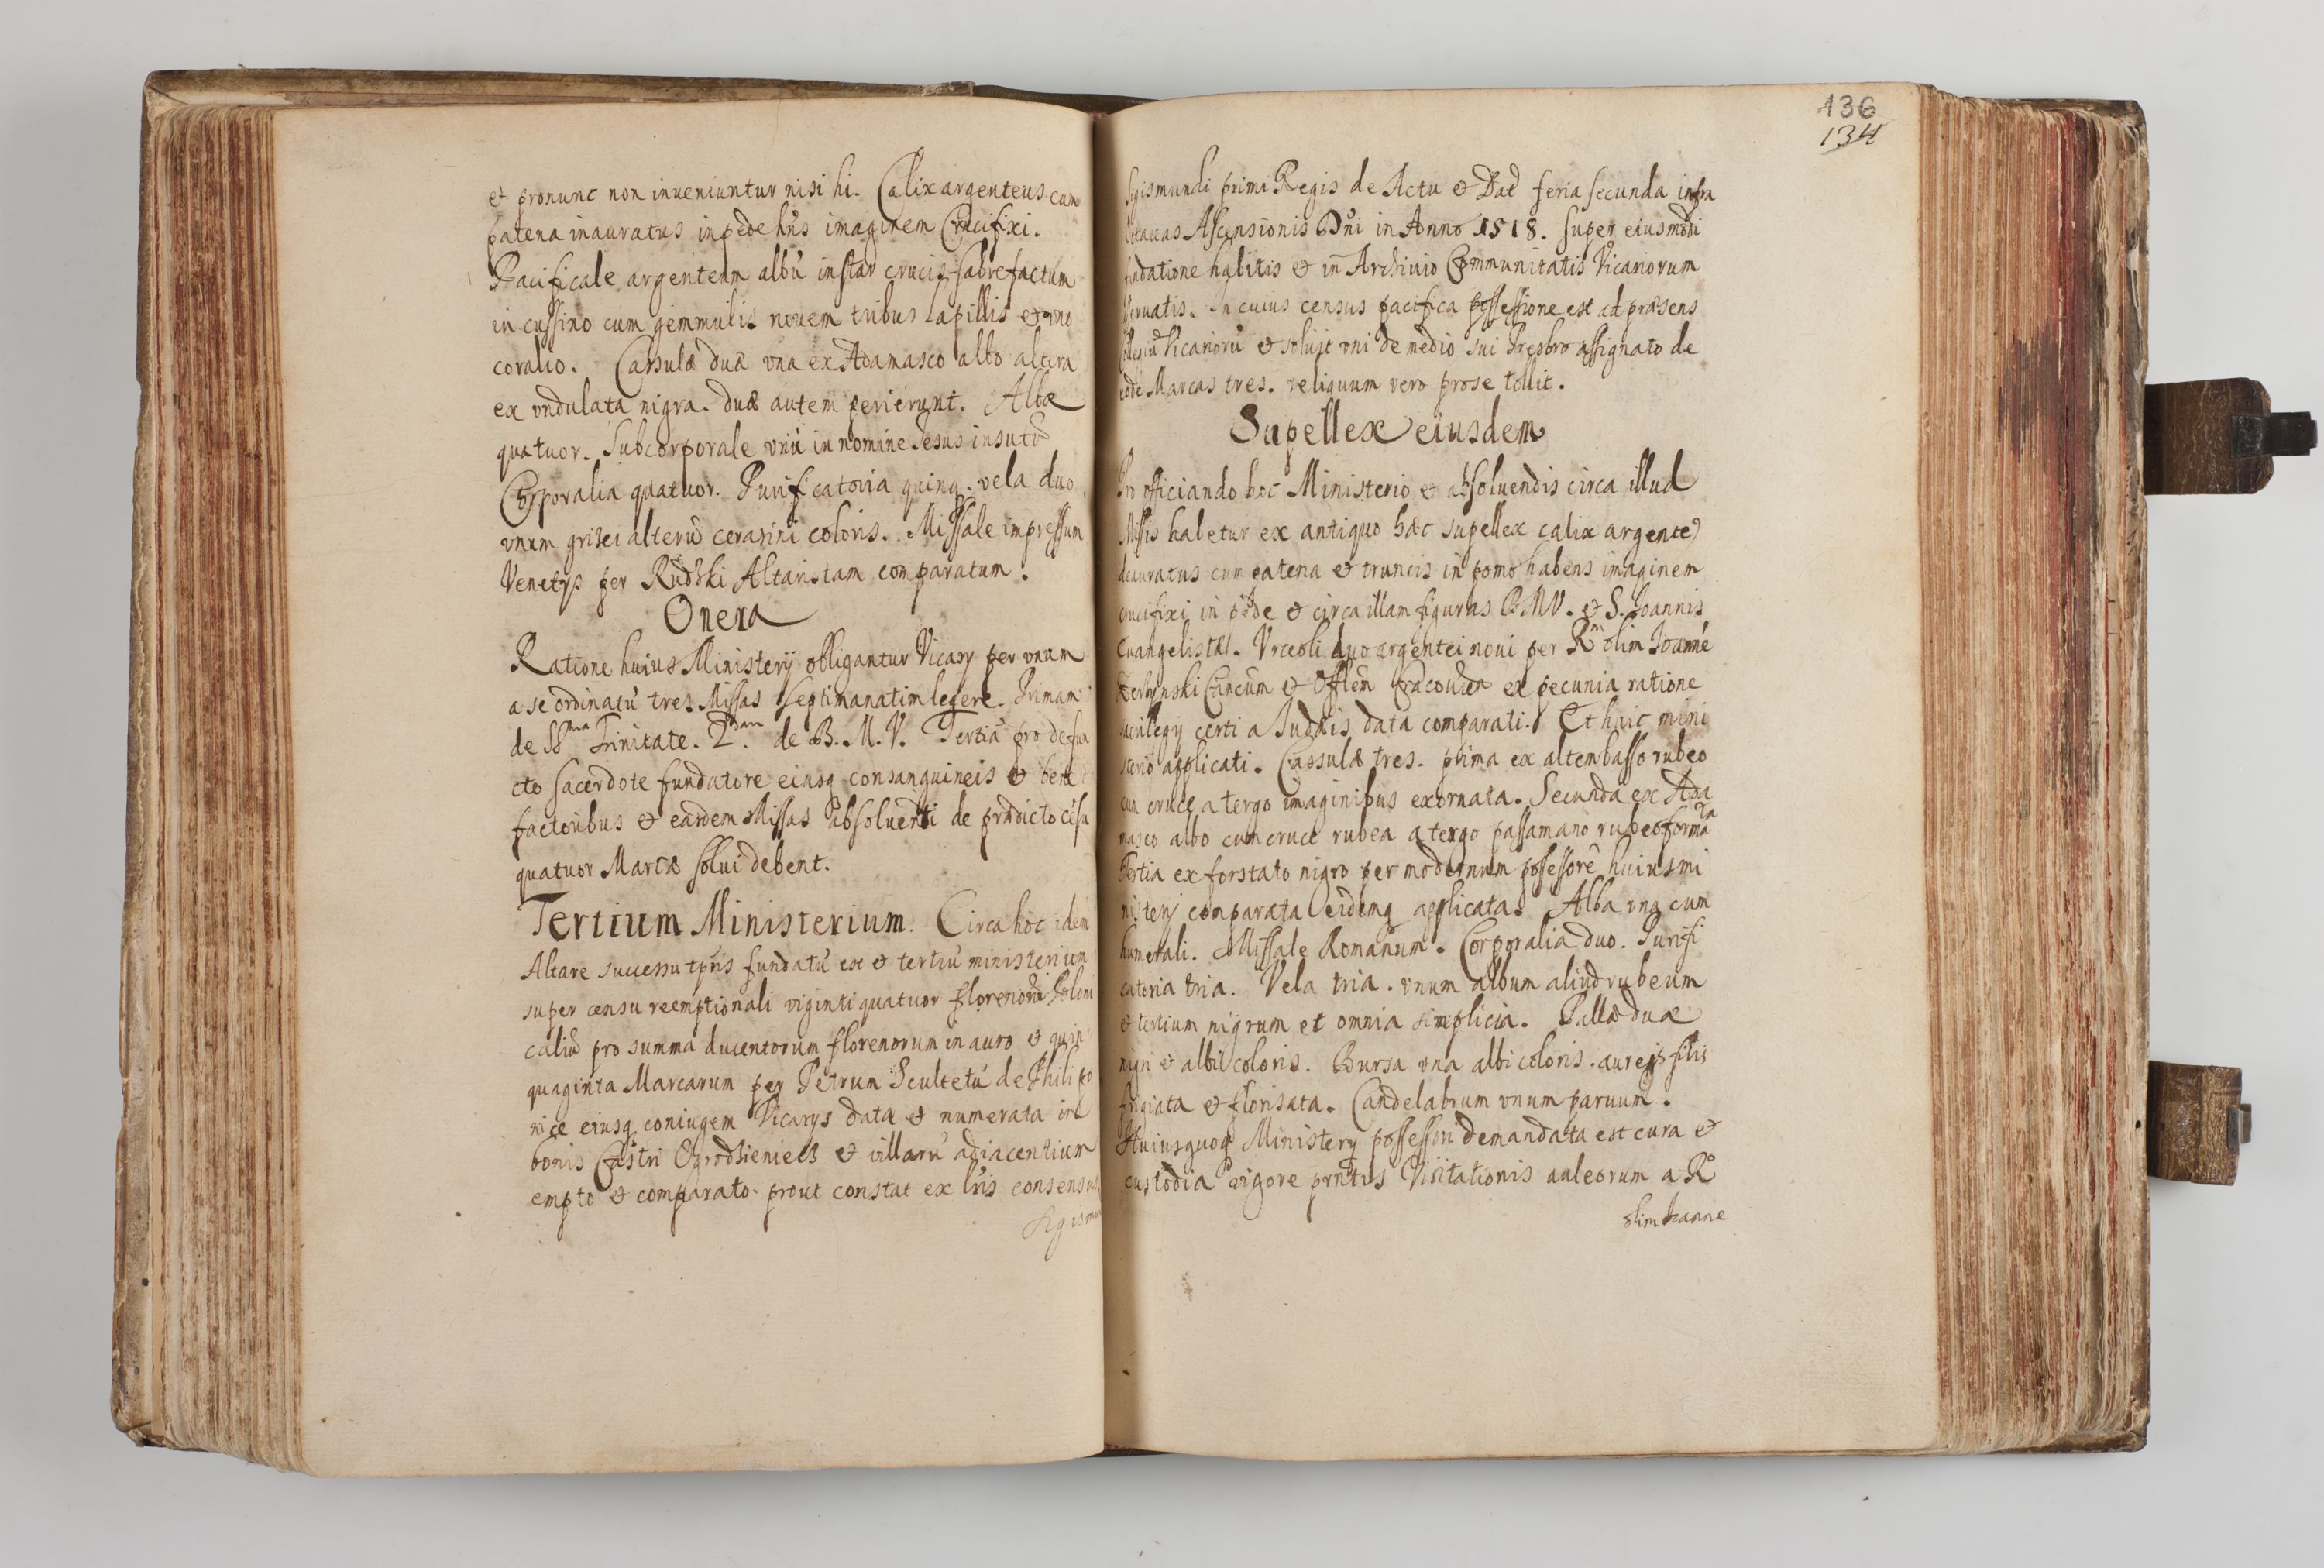 et pronunc non inueniuntur nisi hi. Calix argenteus cum
patena inauratus in pede hñs imaginem Crucifixi.
Pacificale argenteum albũ instar crucis fabrefactum
in cussino cum gemmulis nouem tribus lapillis et vno
coralio. Casulæ duæ vna ex Adamasco albo altera
ex vndulata nigra. duæ autem perierunt. Albæ
quatuor. Subcorporale vnũ in nomine Jesus insutũ
Corporalia quatuor. Purificatoria quinq. vela duo
vnum grisei alterũ cerasini coloris. Missale impressum
Venetijs per Rudski Altaristam comparatum.
Onera
Ratione huius Ministerij obligantur Vicarij per vnum
a se ordinatũ tres Missas septimanatim legere. Primam
de SSma Trinitate. 2dam. de B. M. V. Tertiã pro defun
cto sacerdote fundatore eiusq consanguineis et bene
factoribus et easdem Missas absoluenti de prædicto cẽsu
quatuor Marcæ solui debent.
Tertium Ministerium. Circa hoc idem
Altare successu tp̃ris fundatũ est et tertiũ ministerium
super censu reemptionali viginti quatuor florenorũ Poloni
caliũ pro summa ducentorum florenorum in auro et quin
quaginta Marcarum per Petrum Scultetũ de Philipo
nice eiusq coniugem Vicarijs data et numerata in
bonis Castri Ogrodzieniecz et villarũ adiacentium
empto et comparato prout constat ex lr̃is consensus
Sigismu
136
134
Sigismundi primi Regis de Actu et Dat feria secunda infra
octauas Ascensionis Dñi in Anno 1518. super eiusmodi
fundatione habitis et in Archiuio Communitatis Vicariorum
seruatis. In cuius census pacifica possessione est ad præsens
Collegiũ Vicariorũ et soluit vni de medio sui Presbro assignato de
eodẽ Marcas tres. reliquum vero pro se tollit.
Supellex eiusdem
Pro officiando hoc Ministerio et absoluendis circa illud
Missis habetur ex antiquo hæc supellex calix argente9
deauratus cum patena et truncis in pomo habens imaginem
crucifixi in pede et circa illam figuras B M V. et S. Joannis
Euangelistæ. Vrceoli duo argentei noui per Rm olim Joannẽ
Cancum et Offlem ex pecunia ratione
sacrilegij certi a Judæis data comparati. Et huic mini
sterio applicati. Cassulæ tres. prima ex altembasso rubeo
cum cruce a tergo imaginibus exornata. Secunda ex Ada
masco albo cum cruce rubea a tergo passamano rubeo formata
Tertia ex forstato nigro per modernum possessorẽ huius mi
nisterij comparata eidemq applicata. Alba vna cum
humerali. Missale Romanum. Corporalia duo. Purifi
catoria tria. Vela tria. vnum album aliud rubeum
et tertium nigrum et omnia simplicia. Pallæ duæ
nigri et albi coloris. Bursa vna albi coloris. aureis filis
frigiata et florisata. Candelabrum vnum paruum.
Huius quoq Ministerij possessori demandata est cura et
custodia vigore prñtis Visitationis auleorum a Ro
olim Joanne